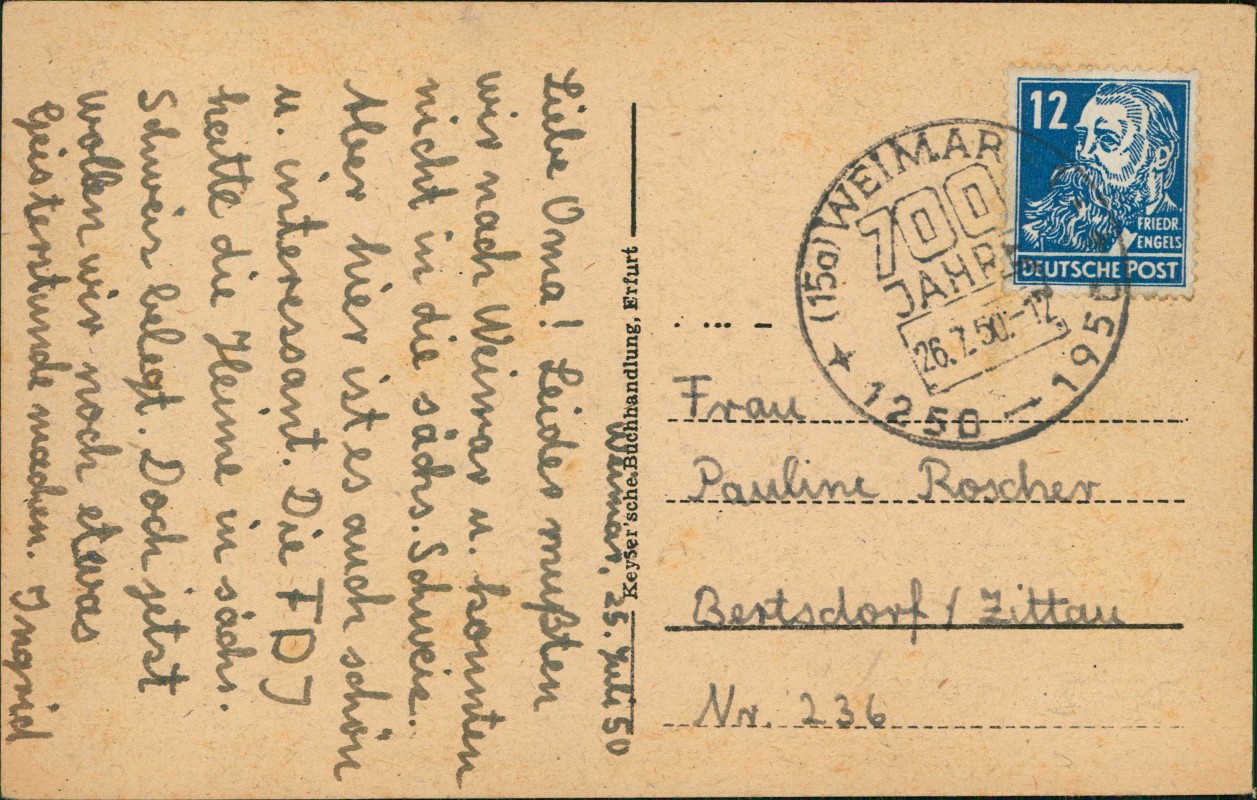 Weimar, 25. Juli 50
Liebe Oma! Leider mußten
wir nach Weimar u. konnten
nicht in die sächs. Schweiz.
Aber hier ist es auch schön
u. interessant. Die FDJ
hatte die Heime in sächs.
Schweiz belegt. Doch jetzt
wollen wir noch etwas
Geisterstunde machen. Ingrid
Keyser'sche Buchhandlung, Erfurt
12
FRIEDR.
ENGELS
DEUTSCHE POST
(15a) WEIMAR
700
JAHRE
26.7.50.-12
1250 — 1950
Frau
Pauline Roscher
Bertsdorf / Zittau
Nr. 236